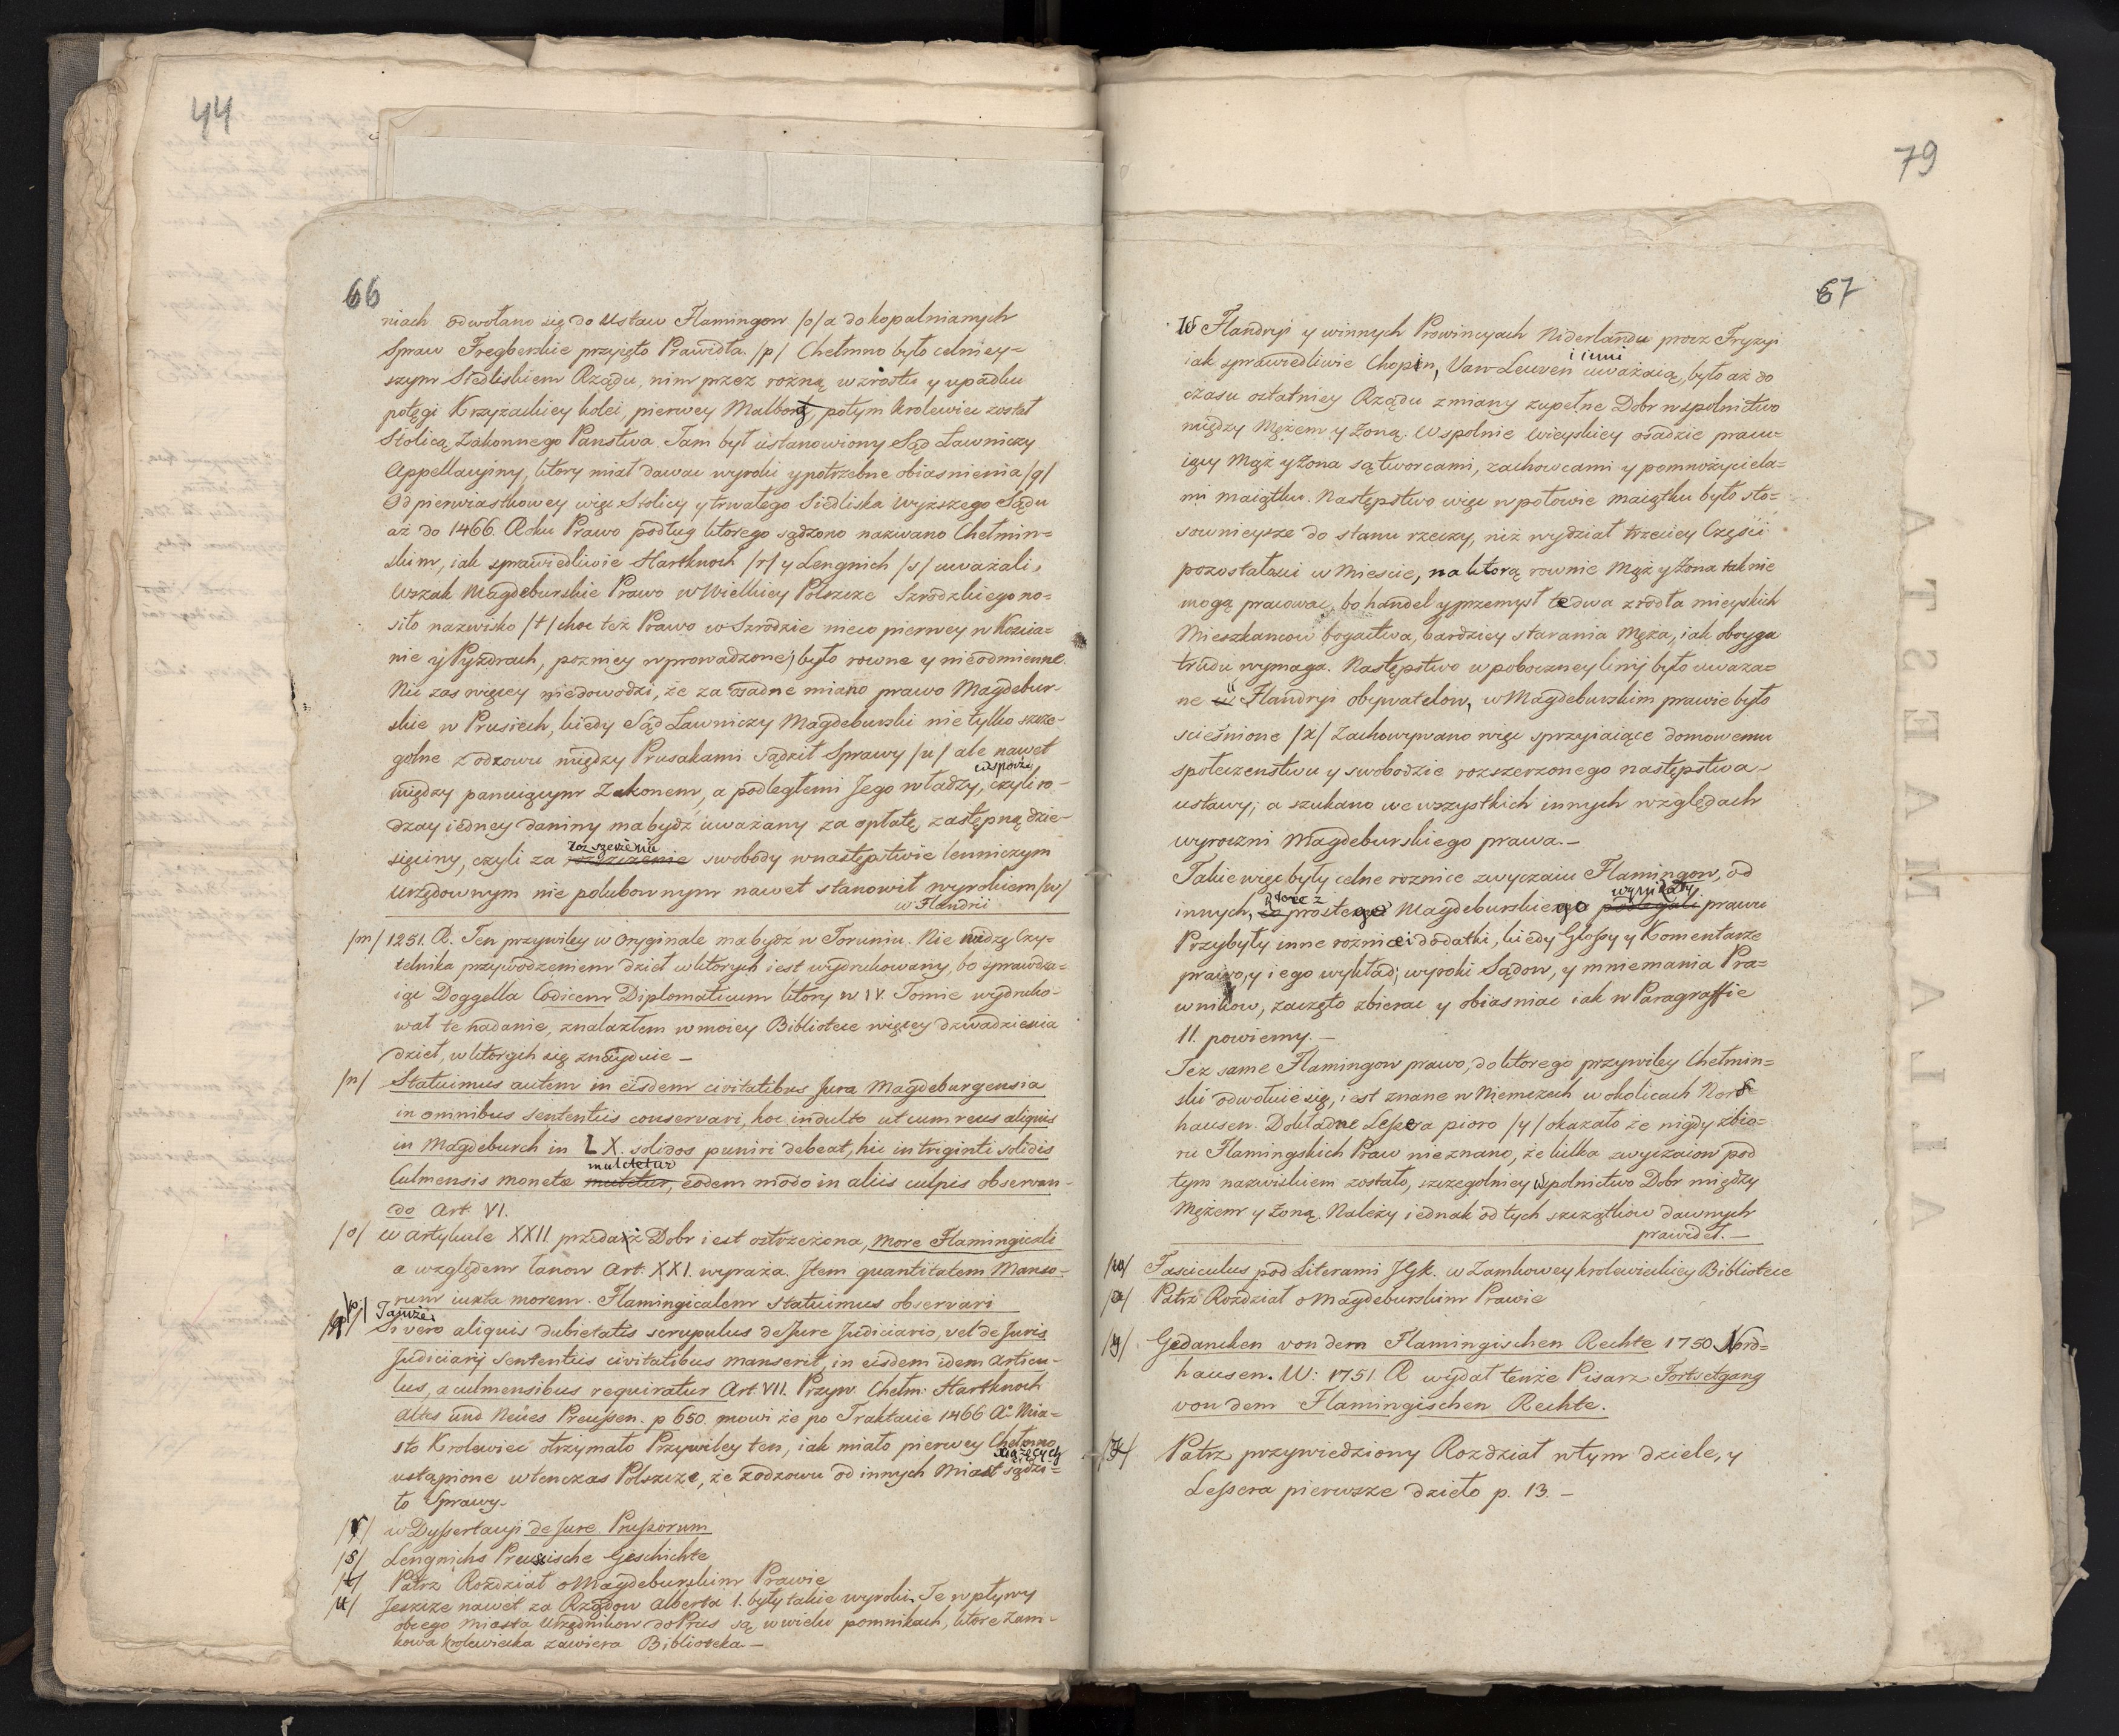 44
66
niach odwołano się do Ustaw Flamingow /o/ a do kopalnianych
Spraw Fregberskie przyięto Prawidła. /p/ Chełmno było celniey=
szym Siedliskiem Rządu, nim przez rożną wzrostu y upadku
potęgi Krzyżackiey kolei, pierwey Malborg, potym Krolewiec został
Stolicą Zakonnego Panstwa. Tam był ustanowiony Sąd Ławniczy
Appellacyiny, ktory miał dawac wyroki y potrzebne obiasnienia /q/
Od pierwiastkowey więc Stolicy y trwałego Siedliska Wyższego Sądu
aż do 1466. Roku Prawo podług ktorego sądzono nazwano Chełmin=
skim, iak sprawiedliwie Hartknoch /r/ y Lengnich /s/ uważali,
Wszak Magdeburskie Prawo w Wielkiey Polszcze Szrodzkiego no=
siło nazwisko /t/ choc też Prawo w Szrodzie nieco pierwey w Kościa=
nie y Pyzdrach, pozniey wprowadzone, było rowne y nieodmienne.
Nic zas więcey niedowodzi, że za osadne miano prawo Magdebur-
skie w Prusiech, kiedy Sąd Ławniczy Magdeburski nie tylko szcze-
golne z odzowu między Prusakami Sądził Sprawy /u/ ale nawet
między panuiącym Zakonem, a podległemi Jego władzy, w sporze czyli ro-
dzay iedney daniny ma bydź uważany za opłatę zastępną dzie-
sięciny, czyli za rozszerzenie swobody w następstwie lenniczym
urzędownym nie polubownym nawet stanowił wyrokiem /w/
w Flandrii
/m/ 1251. R. Ten przywiley w Oryginale ma bydź w Toruniu. Nie nudzę Czy-
telnika przywodzeniem dzieł w ktorych iest wydrukowany, bo sprawdza=
iąc Doggella Codicem Diplomaticum ktory w IV. Tomie wydruko-
wał te nadanie, znalazłem w moiey Bibliotece więcey dzwadziescia
dzieł, w ktorych się znayduie –
/n/ Statuimus autem in eisdem civitatibus Jura Magdeburgensia
in omnibus sententiis conservari, hoc indulto ut cum reus aliquis
in Magdeburch in LX. solidos puniri debeat, hic in triginti solidis
Culmensis monetæ mulctetur, eodem modo in aliis culpis observan-
do Art. VI.
/o/ w Artykule XXII przedaż Dobr iest ostrzeżona, more Flamingicali
a względem łanow Art. XXI. wyraża. Item quantitatem Manso-
rum iuxta morem Flamingicalem statuimus observari
/p/ Tamże
/q/ Si vero aliquis dubietatis scrupulus de Jure Judiciario, vel de Juris
Judiciarij Sententiis civitatibus manserit, in eisdem idem Articu-
lus, a culmensibus requiratur Art. VII. Przyw. Chełm: Hartknoch
Altes und Neües Preußen. p 650. mowi że po Traktacie 1466 A° Mia=
sto Krolewiec otrzymało Przywiley ten, iak miało pierwey Chełmno
ustąpione wtenczas Polszcze, że z odzowu od innych Miast Xiążęcych sądzi=
ło Sprawy.
/r/ w Dyssertacyi de Jure Prussorum
/s/ Lengnichs Preussische Geschichte
/t/ Patrz Rozdział o Magdeburskim Prawie
/u/ Jeszcze nawet za Rządow Alberta 1. były takie wyroki. Te wpływy
obcego Miasta Urzędnikow do Prus są w wielu pomnikach, ktore Zam-
kowa krolewiecka zawiera Biblioteka –
79
67
W Flandryi y w innych Prowincyach Niderlandu procz Fryzyi
iak sprawiedliwie Chopin, Van-Leuven i inni uważaią, było aż do
czasu ostatniey Rządu zmiany zupełne Dobr wspolnictwo
między Mężem y Żoną. Wspolnie wieyskiey osadzie pracu-
iący Mąż y Żona są tworcami, zachowcami y pomnożyciela=
mi maiątku. Następstwo więc w połowie maiątku było sto=
sownieysze do stanu rzeczy, niż wydział trzeciey Części
pozostałosci w Miescie, na ktorą rownie Mąż y Żona tak nie
mogą pracowac, bo handel y przemysł te dwa zrodła mieyskich
Mieszkancow bogactwa, bardziey starania Męża, iak oboyga
trudu wymaga. Następstwo w poboczney linij było uważa=
ne u Flandryi obywatelow, w Magdeburskim prawie było
scieśnione /x/ Zachowywano więc sprzyiaiące domowemu
społeczenstwu y swobodzie rozszerzonego następstwa
ustawy; a szukano we wszystkich innych względach
wyroczni Magdeburskiego prawa. –
Takie więc były celne roznice zwyczaiu Flamingow, od
innych, ktore z prostego Magdeburskiego wynikały prawa
Przybyły inne roznice i dodatki, kiedy Glossy y Komentarze
prawo, y iego wykład; wyroki Sądow, y mniemania Pra=
wnikow, zaczęto zbierac y obiasniac iak w Paragraffie
11. powiemy. –
Tez same Flamingow prawo, do ktorego przywiley Chełmin=
ski odwołuie się, iest znane w Niemczech w okolicach Nord
hausen. Dokładne Lessera pioro /y/ okazało że nigdy zbio=
ru Flamingskich Praw nie znano, że kilka zwyczaiow pod
tym nazwiskiem zostało, szczegolniey wspolnictwo Dobr między
Mężem y Żoną. Należy iednak od tych szczątkow dawnych
prawideł. –
/w/ Fasciculus pod Literami J. k. w Zamkowey krolewieckiey Bibliotece
/x/ Patrz Rozdział o Magdeburskim Prawie
/y/ Gedancken von dem Flamingischen Rechte 1750. Nord=
hausen. W: 1751. R wydał tenże Pisarz Fortsetgang
von dem Flamingischen Rechte.
Patrz przywiedziony Rozdział w tym dziele, y
Lessera pierwsze dzieło p. 13. –